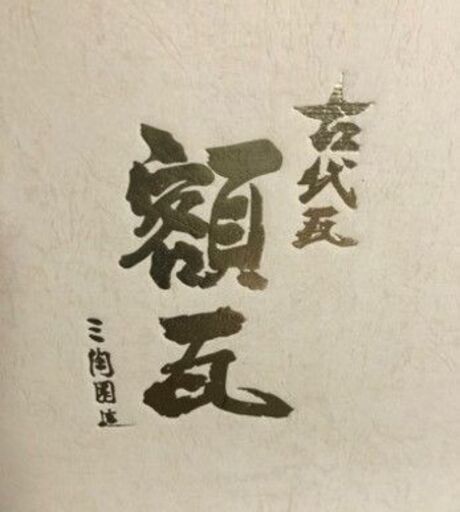 古代瓦
額瓦
三陶園造